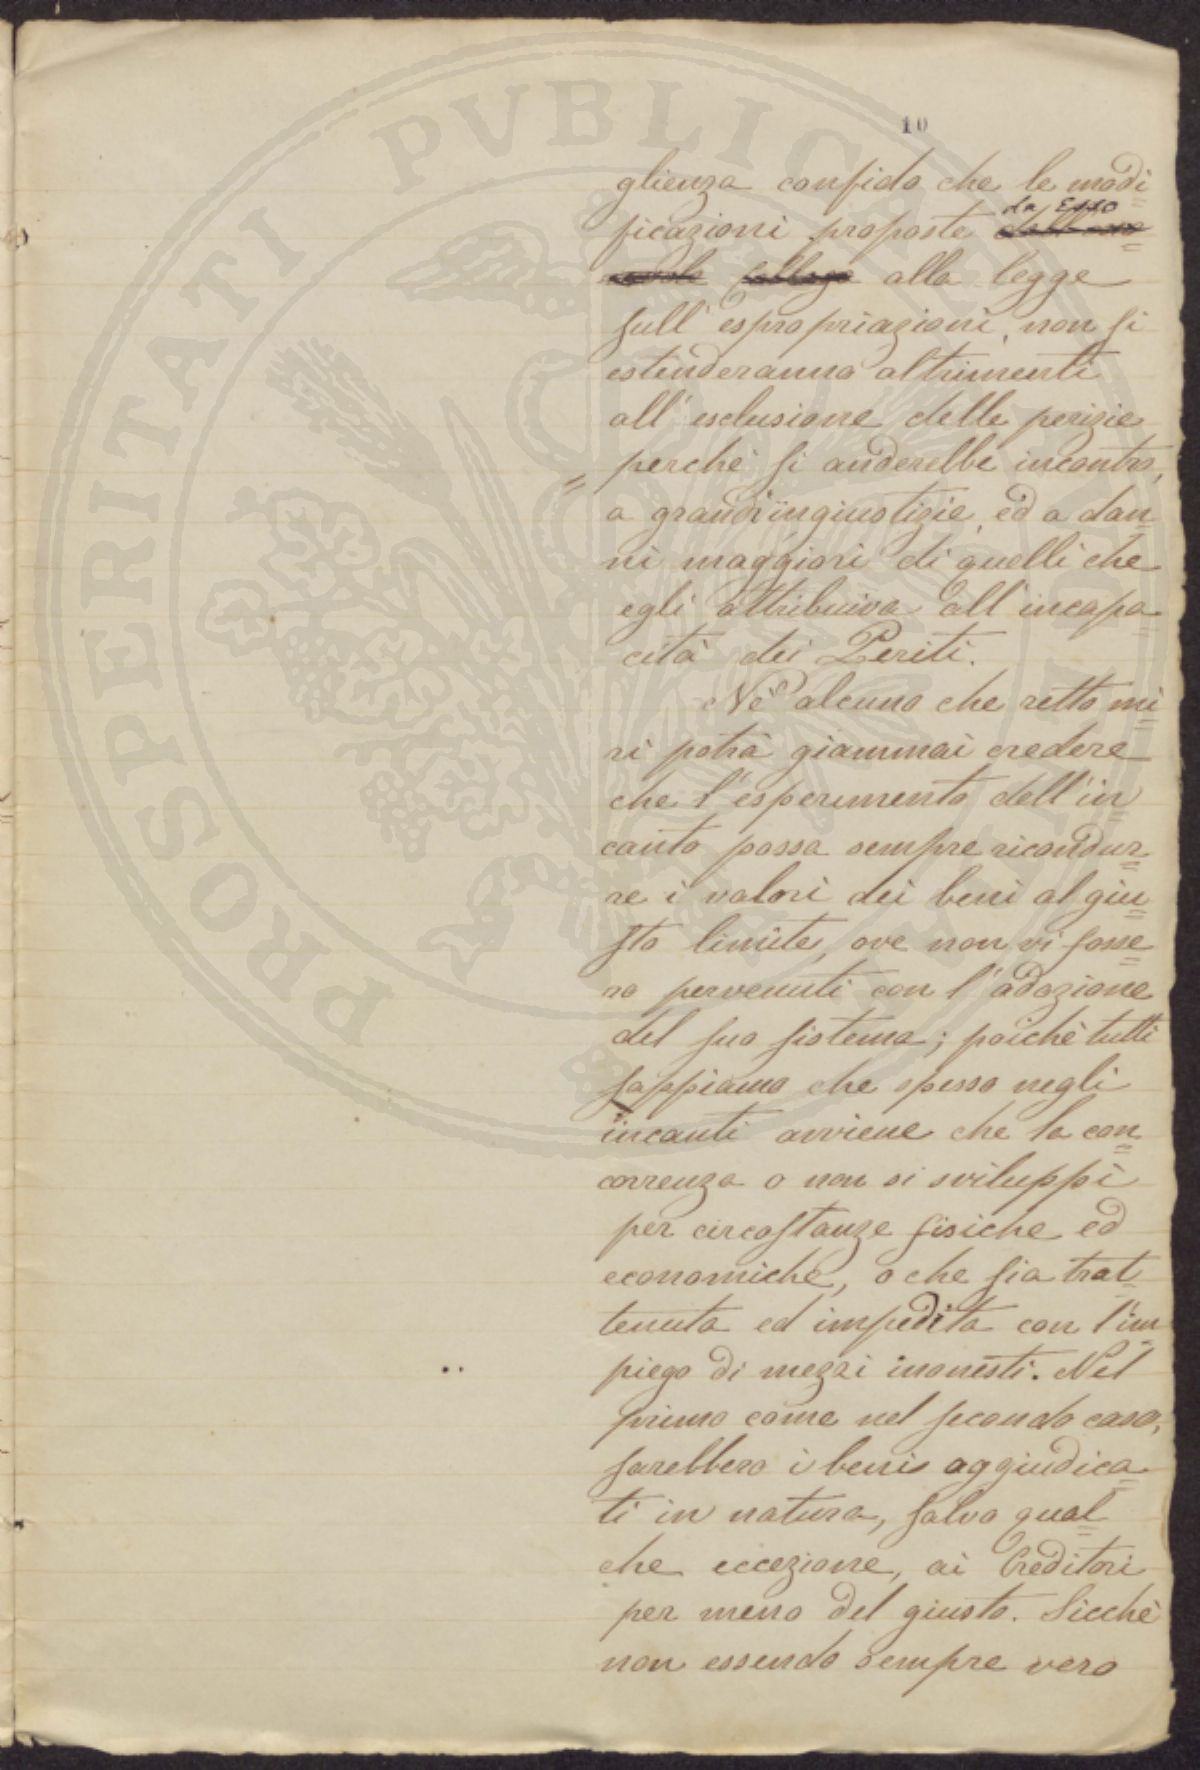 PROSPERITATI PVBLICAE
10
glienza confido che le modi
ficazioni proposte da Esso
alla legge
sull'espropriazioni, non si
estenderanno altrimenti
all'esclusione delle perizie
perchè si anderebbe incontro,
a grandi ingiustizie, ed a dan
ni maggiori di quelli che
egli attribuiva all'incapa
cità dei Periti.
Nè alcuno che retto mi
ri potrà giammai credere
che l'esperimento dell'in
canto possa sempre ricondur
re i valori dei beni al giu
sto limite, ove non vi fosse
ro pervenuti con l'adozione
del suo sistema; poichè tutti
sappiamo che spesso negli
incanti avviene che la con
correnza o non si sviluppi
per circostanze fisiche ed
economiche, o che sia trat
tenuta ed impedita con l'im
piego di mezzi inonesti. Nel
primo come nel secondo caso,
sarebbero i beni aggiudica
ti in natura, salvo qual
che eccezione, ai Creditori
per meno del giusto. Sicchè
non essendo sempre vero